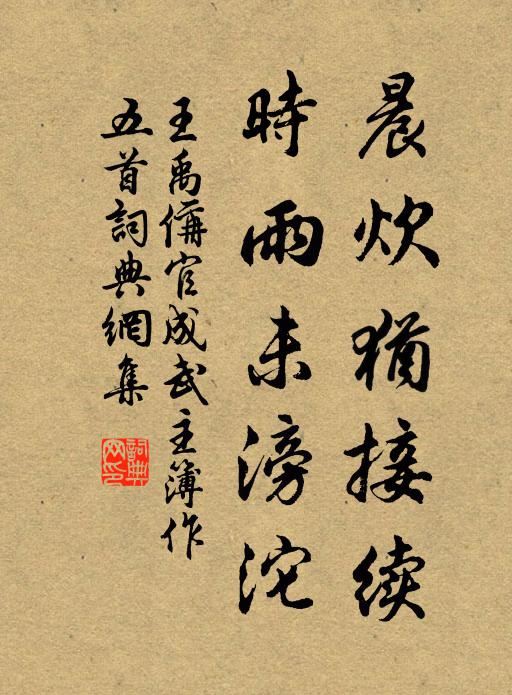 晨炊猶接續
時雨未滂沱
王禹偁官成武主簿作
五首詞典網集
詞典
网印